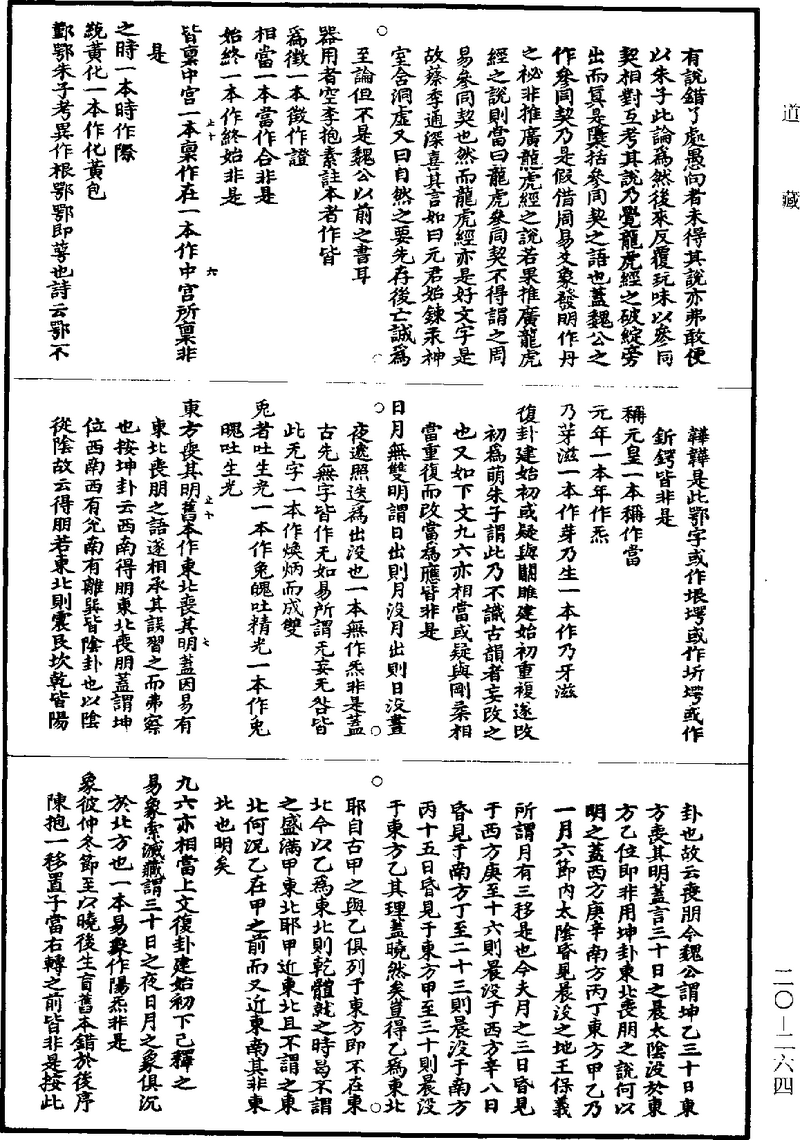 道藏
有說錯了處愚向者未得其說亦弗敢便
以朱子此論爲然後來反覆玩味以參同
契相對互考其說乃覺龍虎經之破綻旁
出而眞是隱括參同契之語也蓋魏公之
作參同契乃是假借周易爻象發明作丹
之秘非推廣龍虎經之說若果推廣龍虎
經之說則當曰龍虎參同契不得謂之周
易參同契也然而龍虎經亦是好文字是
故蔡季通深喜其言如曰元君始鍊汞神
室含洞虛又曰自然之要先存後亡誠爲
至論但不是魏公以前之書耳
器用者空李抱素註本者作皆
爲徵一本徵作證
相當一本當作合非是
始終一本作終始非是
皆稟中宮一本稟作在一本作中宮所稟非
是
之時一本時作際
玄黃化一本作化黃包
鄞鄂朱子考異作根鄂鄂即萼也詩云鄂不
韡韡是此鄂字或作垠堮或作圻堮或作
釿鍔皆非是
稱元皇一本稱作當
元年一本年作炁
乃芽滋一本作芽乃生一本作乃牙滋
復卦建始初或疑與關雎建始初重複遂改
初爲萌朱子謂此乃不識古韻者妄改之
也又如下文九六亦相當或疑與剛柔相
當重復而改當爲應皆非是
日月無雙明謂日出則月没月出則日没晝
夜遞照迭爲出没也一本無作炁非是蓋
古先無字皆作无如易所謂无妄无咎皆
此无字一本作煥炳而成雙
兎者吐生光一本作兔魄吐精光一本作兔
魄吐生光
東方喪其明舊本作東北喪其明蓋因易有
東北喪朋之語遂相承其誤習之而弗察
也按坤卦云西南得朋東北喪朋蓋謂坤
位西南西有兊南有離巽皆陰卦也以陰
從陰故云得朋若東北則震艮坎乾皆陽
卦也故云喪朋今魏公謂坤乙三十日東
方喪其明蓋言三十日之晨太陰没於東
方乙位即非用坤卦東北喪朋之說何以
明之蓋西方庚辛南方丙丁東方甲乙乃
一月六節内太陰昏見晨没之地王保義
所謂月有三移是也今夫月之三日昏見
于西方庚至十六則晨没于西方辛八日
昏見于南方丁至二十三則晨没于南方
丙十五日昏見于東方甲至三十則晨没
于東方乙其理蓋曉然矣豈得乙爲東北
耶自古甲之與乙俱列于東方即不在東
北今以乙爲東北則乾體就之時曷不謂
之盛滿甲東北耶甲近東北且不謂之東
北何況乙在甲之前而又近東南其非東
北也明矣
九六亦相當上文復卦建始初下已釋之
易象索滅藏謂三十日之夜日月之象俱沉
於北方也一本易象作陽炁非是
象彼仲冬節至以曉後生盲舊本錯於後序
陳抱一移置子當右轉之前皆非是按此
二〇—二六四